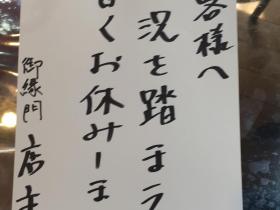 客様へ
況を踏まえ
くお休みしま
御縁門 店主